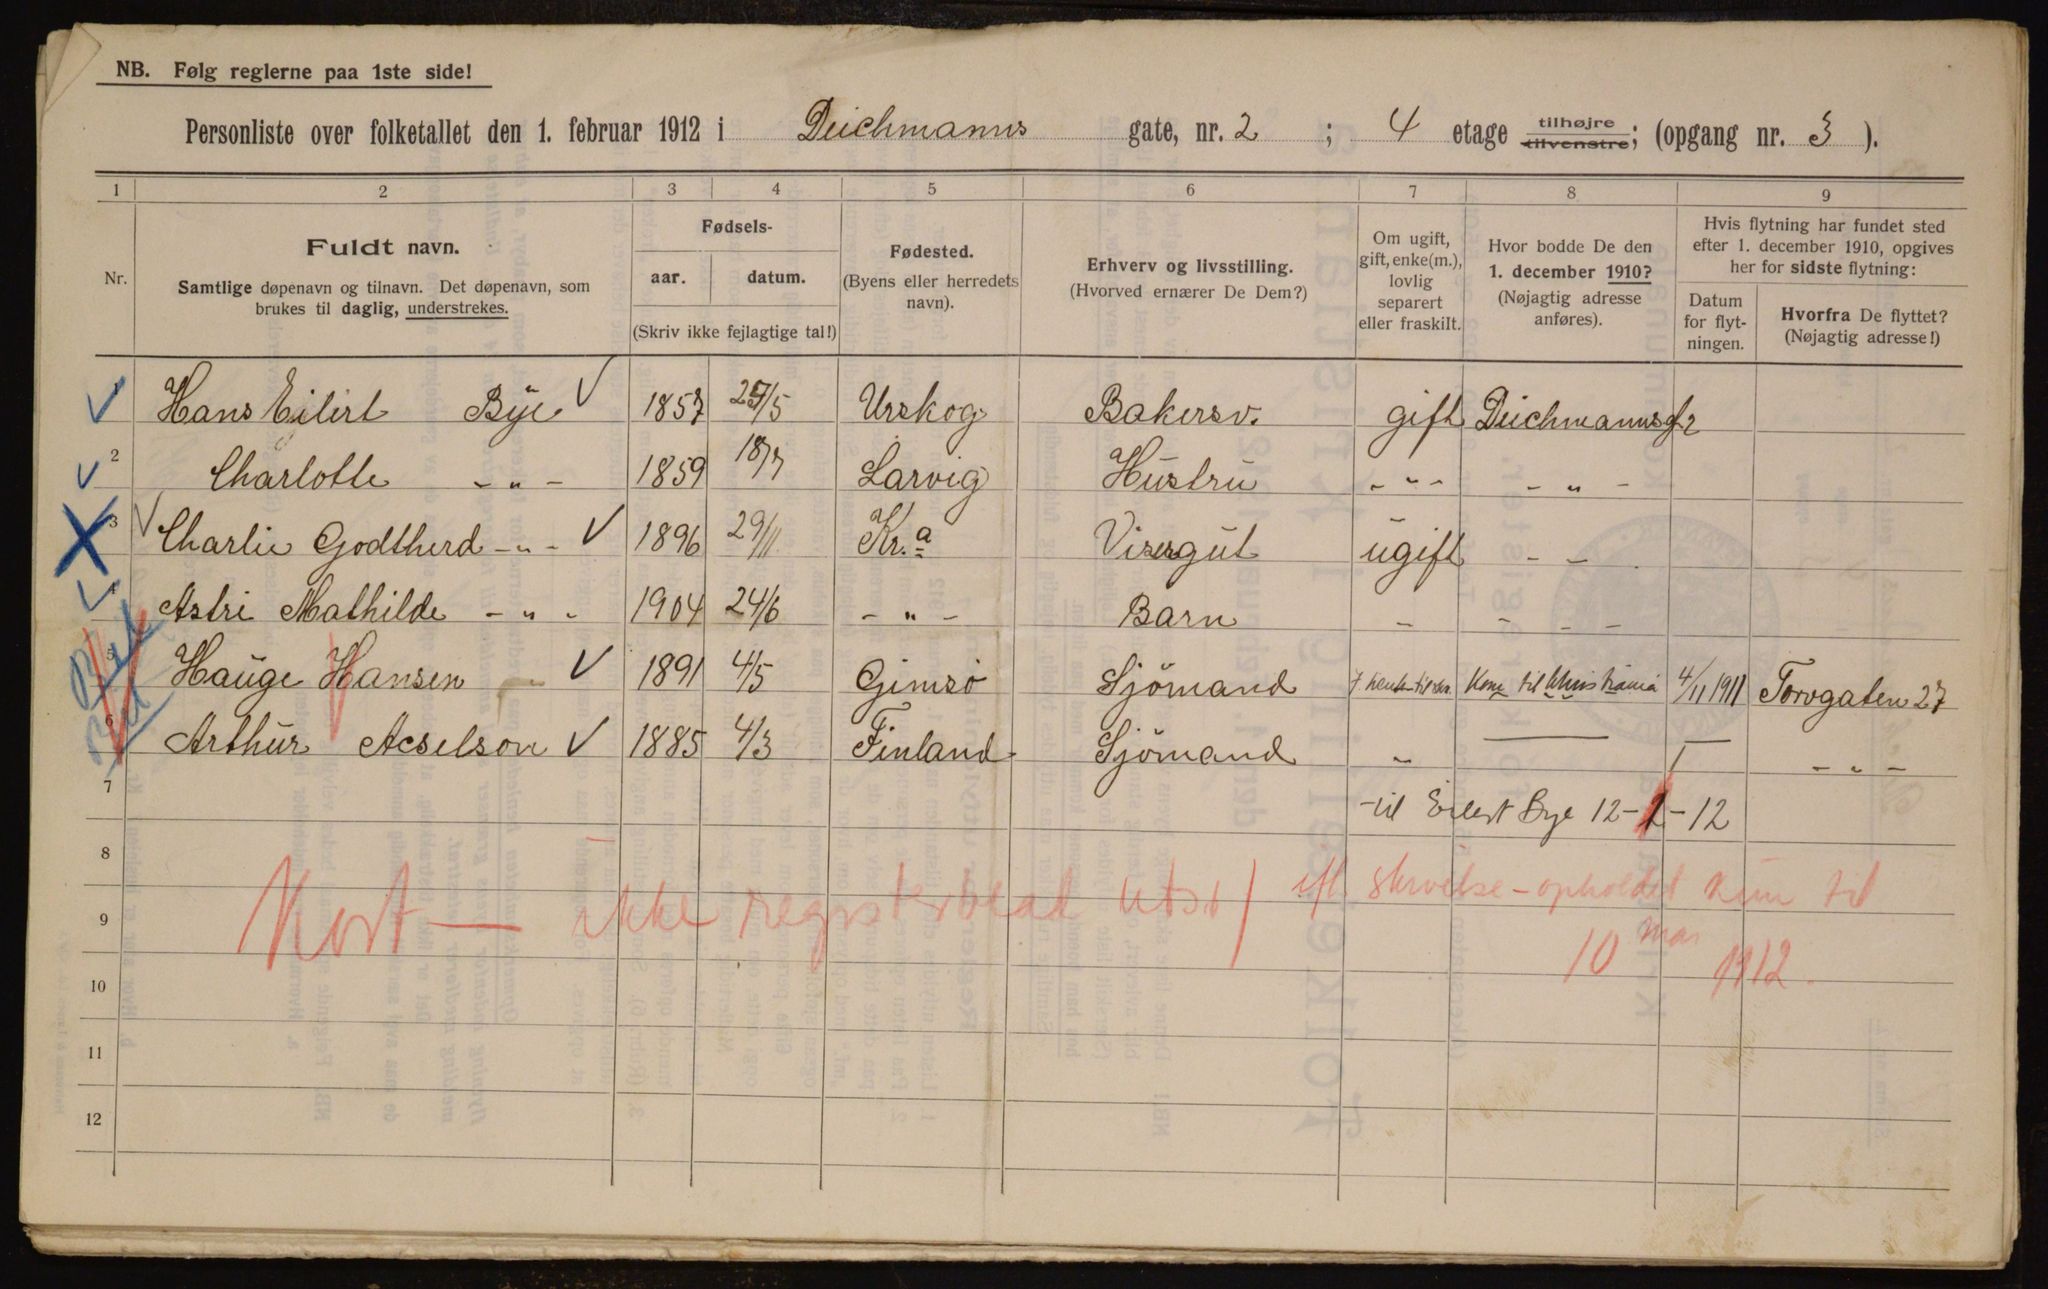 NB. Følg reglerne paa 1ste side!
Personliste over folketallet den 1. februar 1912 i Deichmanns gate, nr. 2 ; 4 etage tilhøjre tilvenstre; (opgang nr. 3 ).
1 2 3 4 5 6 7 8 9
Nr.
Fuldt navn.
Samtlige døpenavn og tilnavn. Det døpenavn, som
brukes til daglig, understrekes.
Fødsels-
aar. datum.
(Skriv ikke fejlagtige tal!)
Fødested.
(Byens eller herredets
navn).
Erhverv og livsstilling.
(Hvorved ernærer De Dem?)
Om ugift,
gift, enke(m.),
lovlig
separert
eller fraskilt.
Hvor bodde De den
1. december 1910?
(Nøjagtig adresse
anføres).
Hvis flytning har fundet sted
efter 1. december 1910, opgives
her for sidste flytning:
Datum
for flyt-
ningen.
Hvorfra De flyttet?
(Nøjagtig adresse!)
1 Hans Eilert Bye 1857 /5 Urskog Bakersv. gift Deichmannsg 2
2 Charlotte - " - 1859 18/7 Larvig Hustru - " - - " -
3 Charlie Godtherd - " - 1896 29/11 Kr.a Visergut ugift - -
4 Astri Mathilde - " - 1904 24/6 - " - Barn - - - -
5 Hauge Hansen 1891 4/5 Gimsö Sjömand Kom til Christiania 4/11 1911 Torvgaten 27
6 Arthur Acselson 1885 4/3 Finland Sjömand " — - " -
7 til Eilert Bye 12-2-12
8
Kort — ikke registerblad utst / efl. skrivelse - opholdet kun til
9
10 mar 1912.
10
11
12